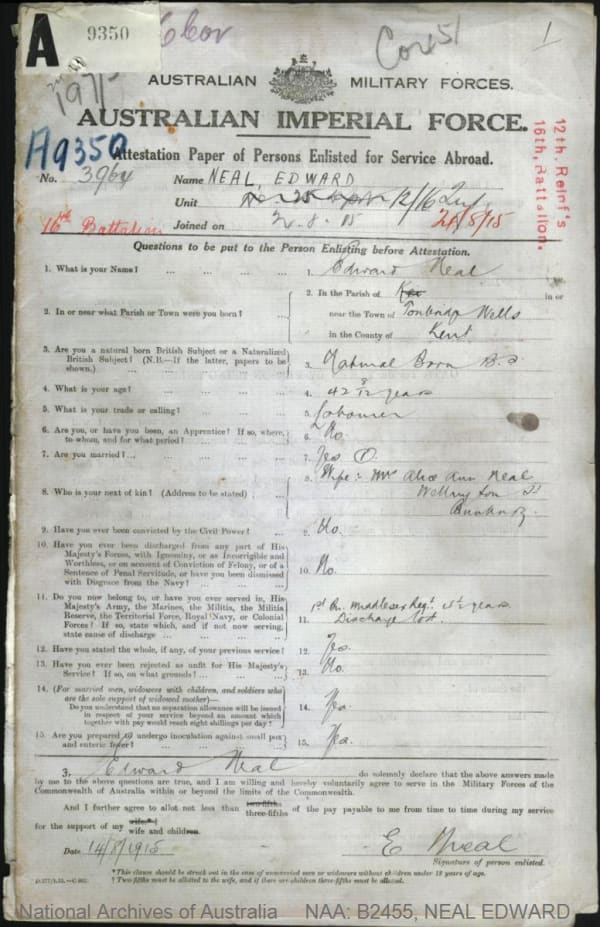 A 9350
Cor 51
1
1971
AUSTRALIAN MILITARY FORCES.
AUSTRALIAN IMPERIAL FORCE.
A9350
Attestation Paper of Persons Enlisted for Service Abroad.
12th. Reinf's
16th. Battalion.
No. 3964 Name NEAL, EDWARD
Unit 12/16 Inf
16th Battalion Joined on 2.8.15 21/8/15
Questions to be put to the Person Enlisting before Attestation.
1. What is your Name? ... ... ... ... 1. Edward Neal
2. In or near what Parish or Town were you born? ... 2. In the Parish of in or
near the Town of Tonbridge Wells
in the County of Kent
3. Are you a natural born British Subject or a Naturalized
British Subject? (N.B.—If the latter, papers to be
shown.) ... ... 3. Natural Born B.S
4. What is your age? ... ... ... ... 4. 42 3/12 years
5. What is your trade or calling? ... ... 5. Labourer
6. Are you, or have you been, an Apprentice? If so, where,
to whom, and for what period? ... ... 6. No
7. Are you married? ... ... ... 7. Yes
8. Who is your next of kin? (Address to be stated) ... 8. Wife :- Mrs Alice Ann Neal
Wellington St
Bunbury.
9. Have you ever been convicted by the Civil Power? ... 9. No.
10. Have you ever been discharged from any part of His
Majesty's Forces, with Ignominy, or as Incorrigible and
Worthless, or on account of Conviction of Felony, or of a
Sentence of Penal Servitude, or have you been dismissed
with Disgrace from the Navy? ... ... 10. No.
11. Do you now belong to, or have you ever served in, His
Majesty's Army, the Marines, the Militia, the Militia
Reserve, the Territorial Force, Royal Navy, or Colonial
Forces? If so, state which, and if not now serving,
state cause of discharge ... ... 11. 1st Bn. Middlesex Regt. 5½ years
Discharge lost.
12. Have you stated the whole, if any, of your previous service? 12. Yes.
13. Have you ever been rejected as unfit for His Majesty's
Service? If so, on what grounds? ... ... 13. No.
14. (For married men, widowers with children, and soldiers who
are the sole support of widowed mother)—
Do you understand that no separation allowance will be issued
in respect of your service beyond an amount which
together with pay would reach eight shillings per day? 14. Yes.
15. Are you prepared to undergo inoculation against small pox
and enteric fever? ... ... 15. Yes.
3, Edward Neal do solemnly declare that the above answers made
by me to the above questions are true, and I am willing and hereby voluntarily agree to serve in the Military Forces of the
Commonwealth of Australia within or beyond the limits of the Commonwealth.
And I further agree to allot not less than two-fifths three-fifths of the pay payable to me from time to time during my service
for the support of my wife.* wife and children.
Date 14/8/1915 E Neal
Signature of person enlisted.
* This clause should be struck out in the case of unmarried men or widowers without children under 18 years of age.
† Two-fifths must be allotted to the wife, and if there are children three-fifths must be allotted.
National Archives of Australia NAA: B2455, NEAL EDWARD